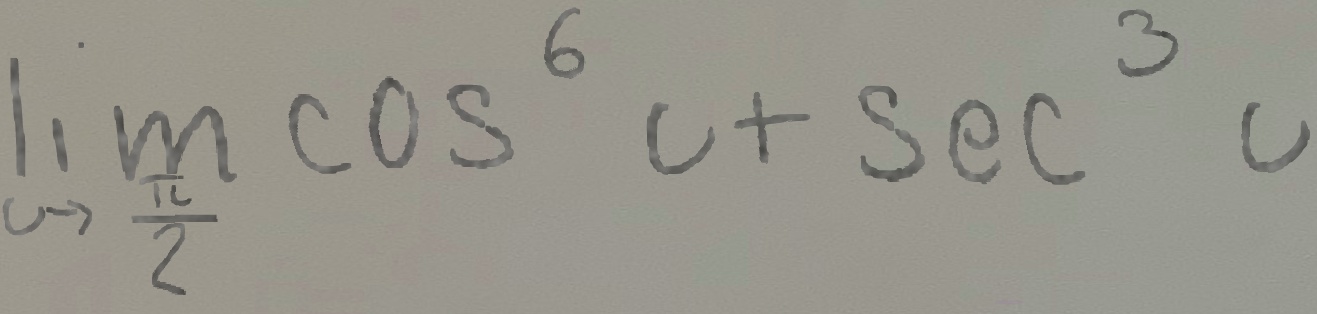 \lim_{u \to \frac{\pi}{2}} \cos^6 u + \sec^3 u